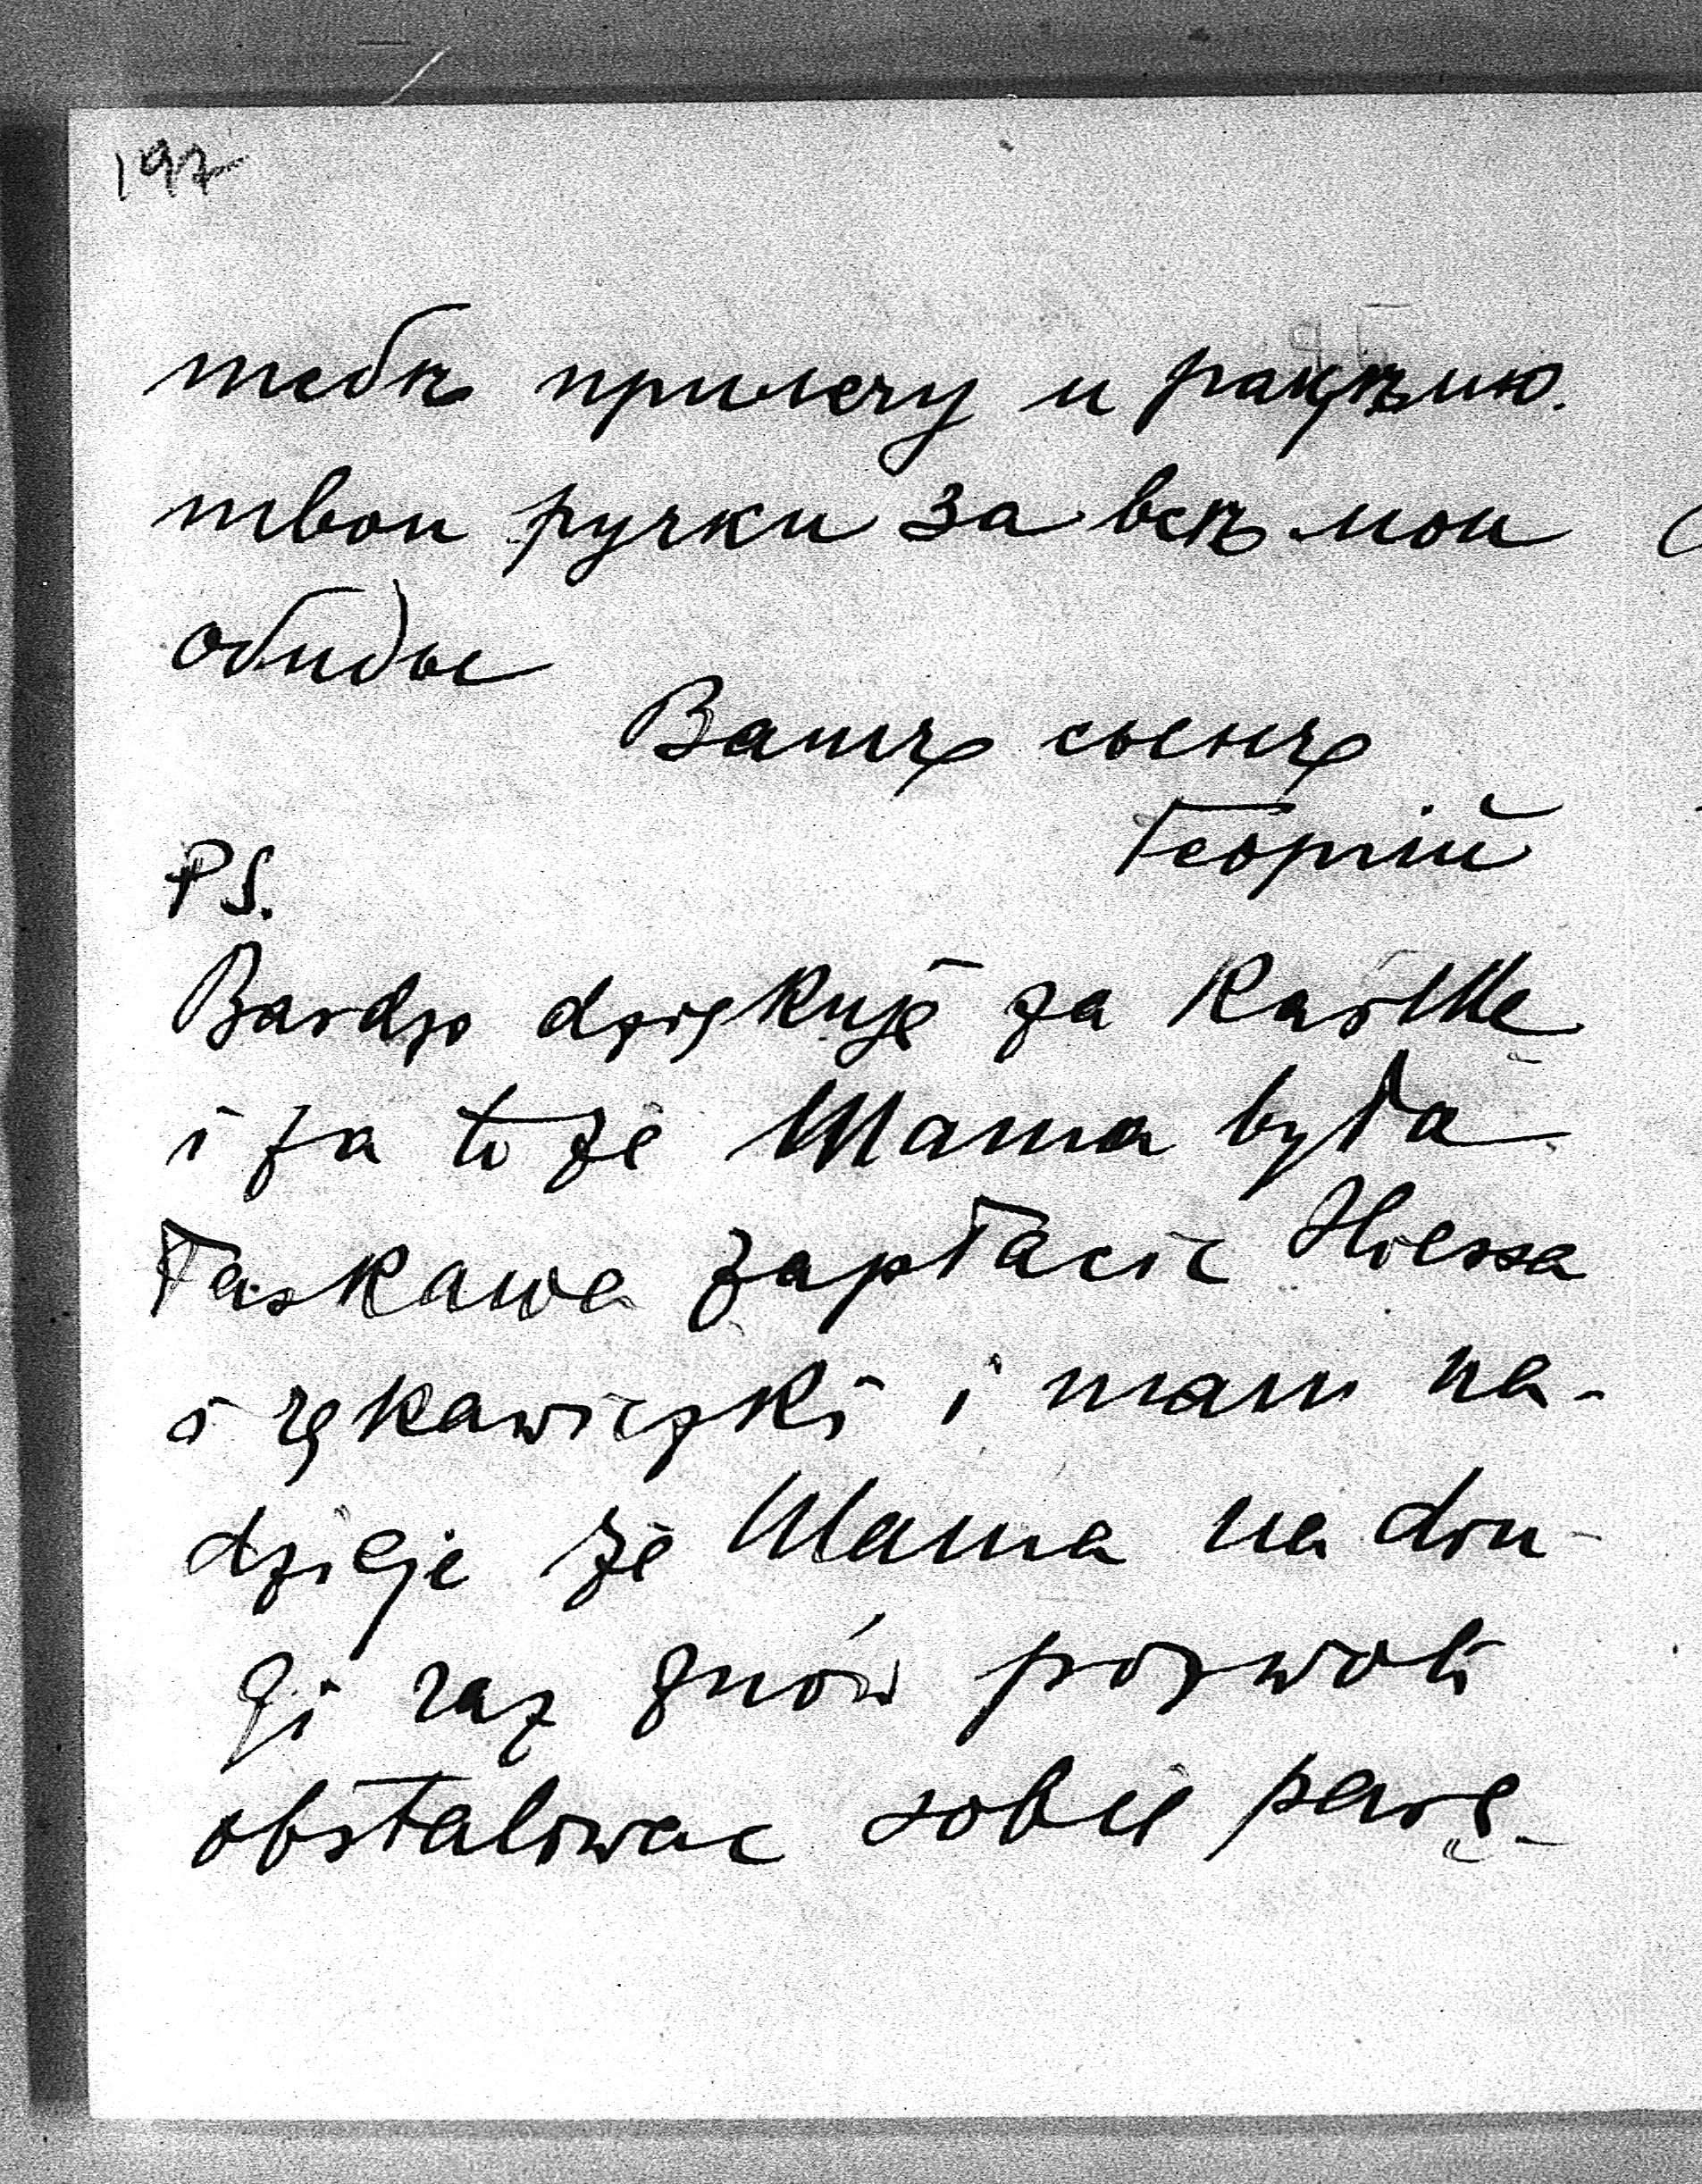 197
тебѣ прилечу и
твои ручки за всѣ мои
обиды
Вашъ сынъ
Георгій
PS.
Bardzo dziękuję za kartkę
i za to że Mama była
łaskawa zapłacić
i rękawiczki i mam na-
dzieje że Mama na dru-
gi raz znów pozwoli
obstalować sobie parę